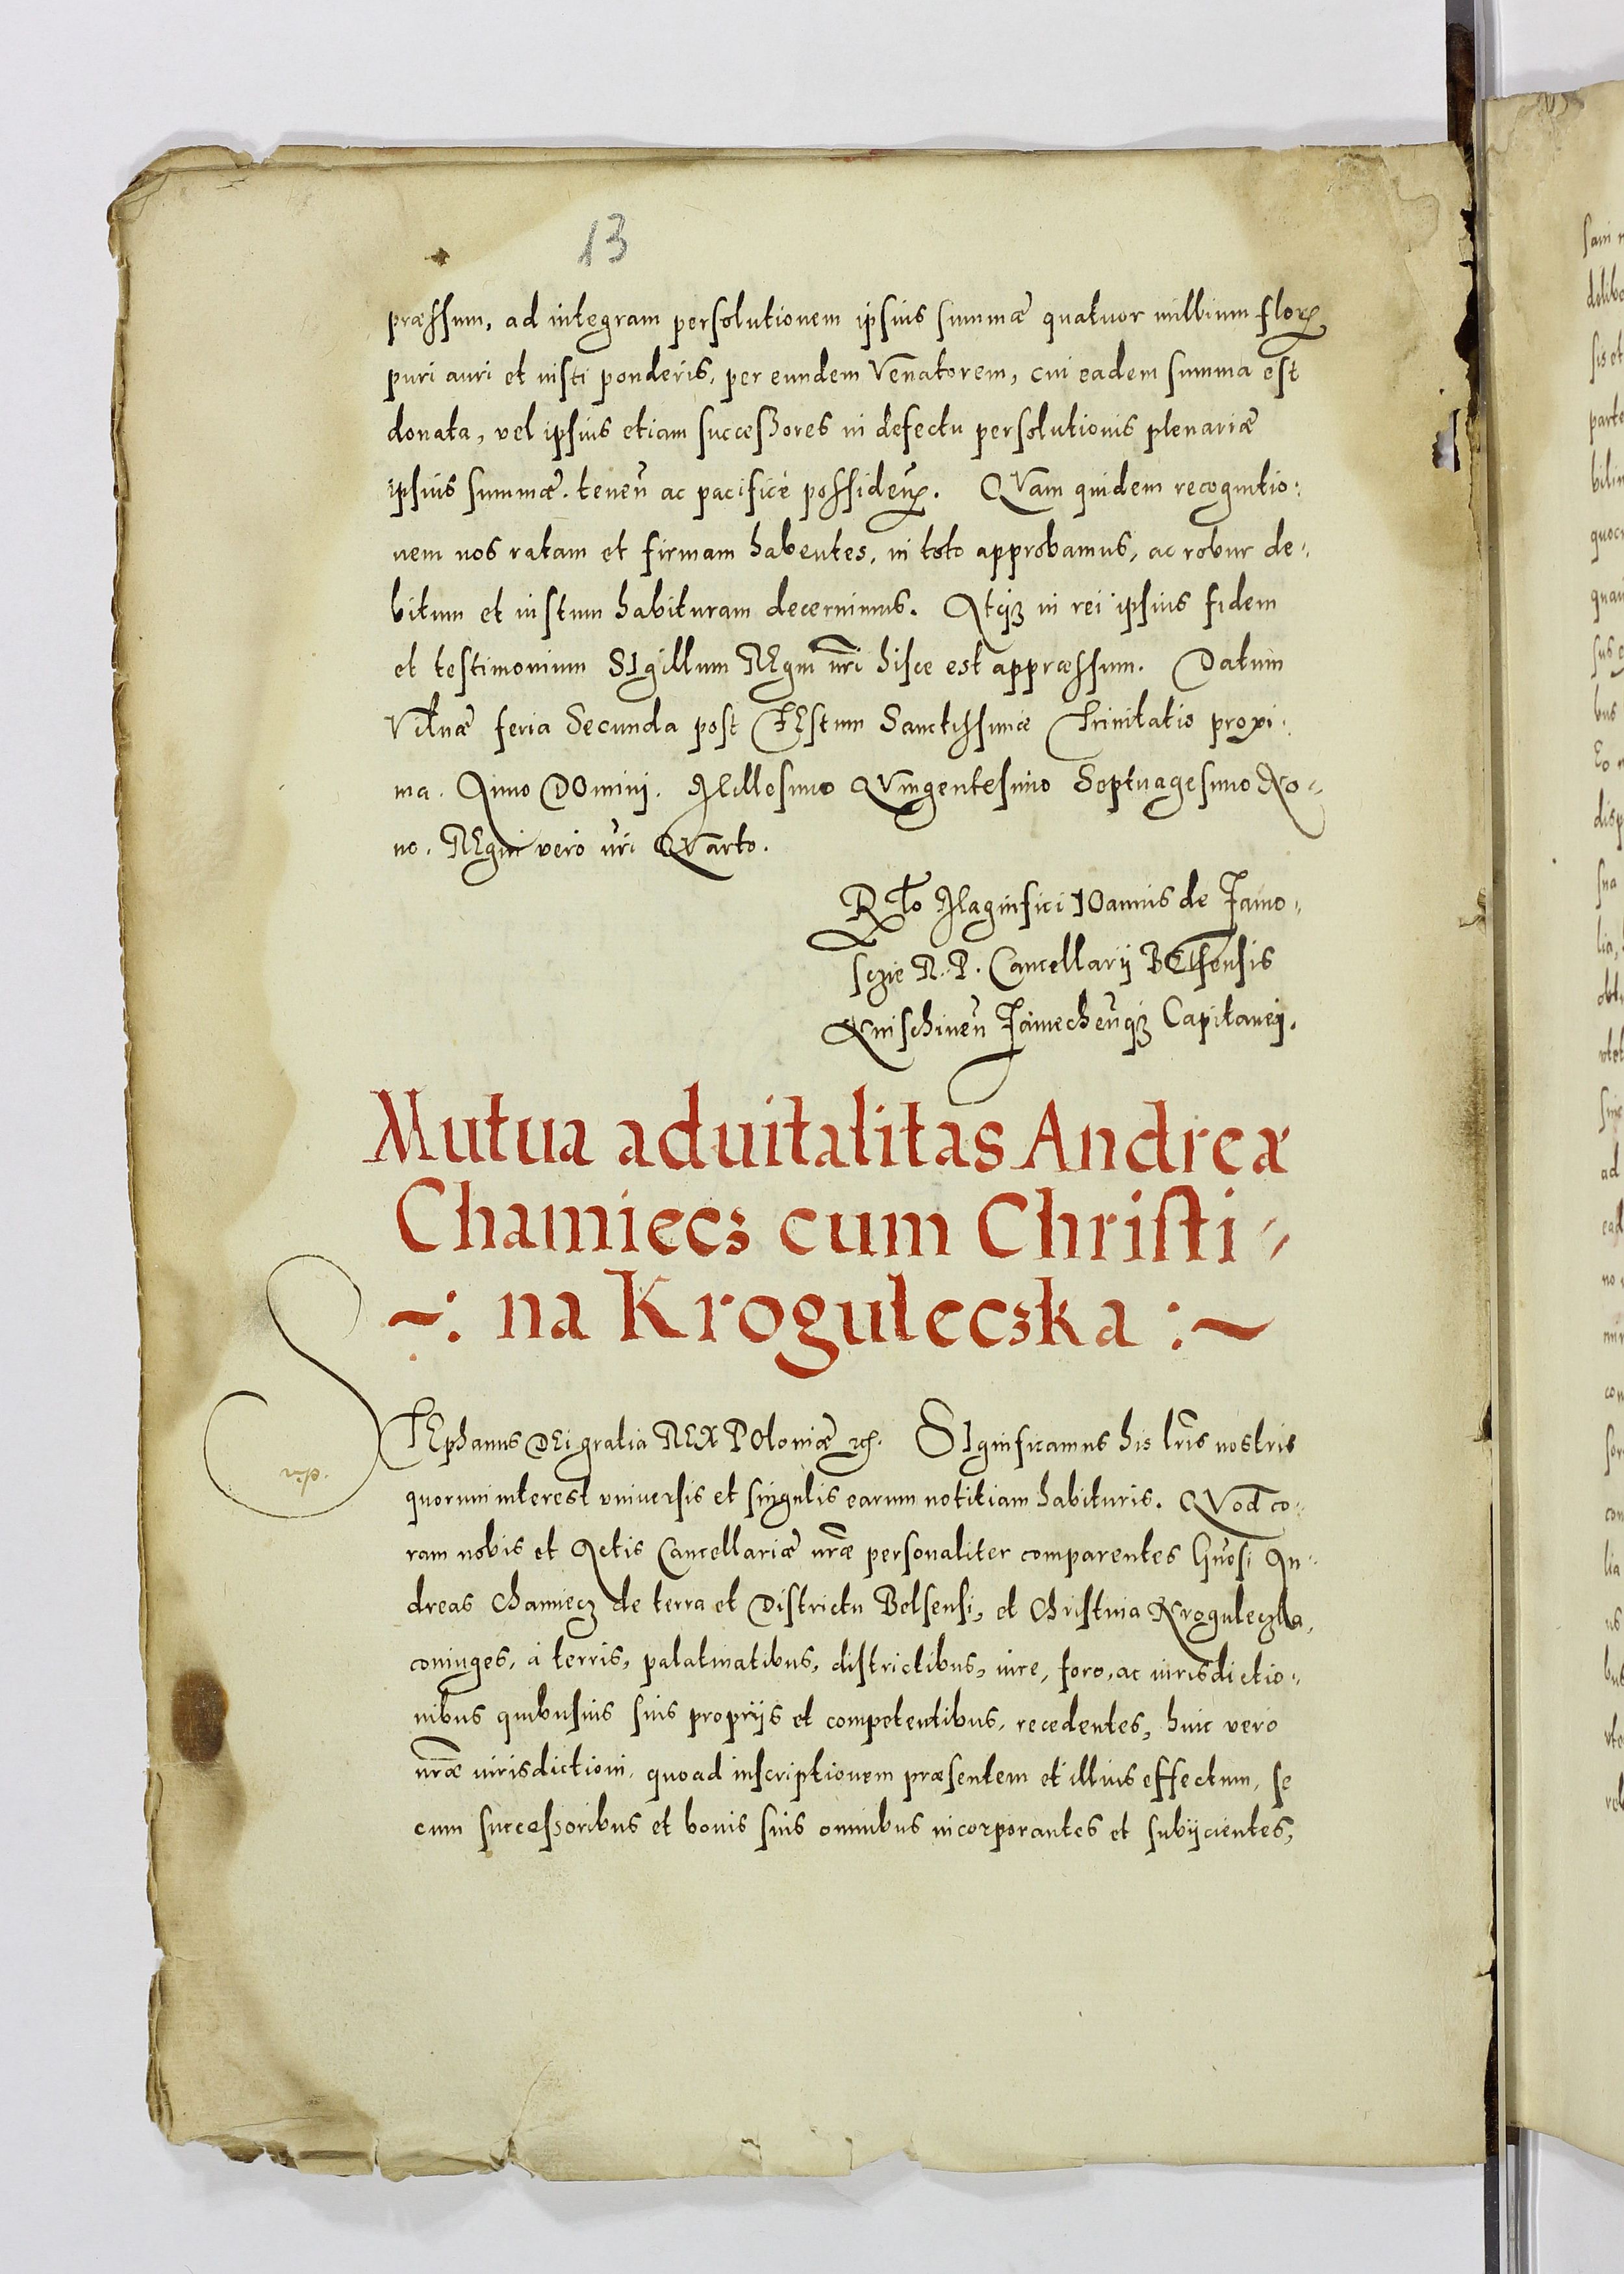 13
præssum, ad integram persolutionem ipsius summæ quatuor millium floꝝ
puri auri et iusti ponderis, per eundem Venatorem, cui eadem summa est
donata, vel ipsius etiam successores in defectu persolutionis plenariæ
ipsius summæ. teneñ ac pacificè possideñ. QVam quidem recognitio:
nem nos ratam et firmam habentes, in toto approbamus, ac robur de:
bitum et iustum habituram decernimus. Atqȝ in rei ipsius fidem
et testimonium SIgillum REgni nr̃i hisce est appræssum. Datum
Vilnæ feria Secunda post FEstum Sanctissimæ Trinitatis proxi:
ma. Anno DOmini. Millesimo QVingentesimo Septuagesimo No:
no. REgni vero nr̃i QVarto.
Rtõ Magnifici IOannis de Zamo:
sczie R. P. Cancellarij BElsensis
Knischineñ Zamecheñqȝ Capitanei.
Mutua aduitalitas Andreæ
Chamiecz cum Christi:
~: na Kroguleczka :~
STEphanus DEi gratia REX POloniæ ꝛc. SIgnificamus his lr̃is nostris
quorum interest vniuersis et singulis earum notitiam habituris. QVod co:
ram nobis et Actis Cancellariæ nr̃æ personaliter comparentes Gñosi An:
dreas Chamiecz de terra et Districtu Belsensi, et Christina Kroguleczka,
coniuges, à terris, palatinatibus, districtibus, iure, foro, ac iurisdictio:
nibus quibusuis suis proprijs et competentibus, recedentes, huic vero
nr̃æ iurisdictioni, quoad inscriptionem præsentem et illius effectum, se
cum successoribus et bonis suis omnibus incorporantes et subijcientes,